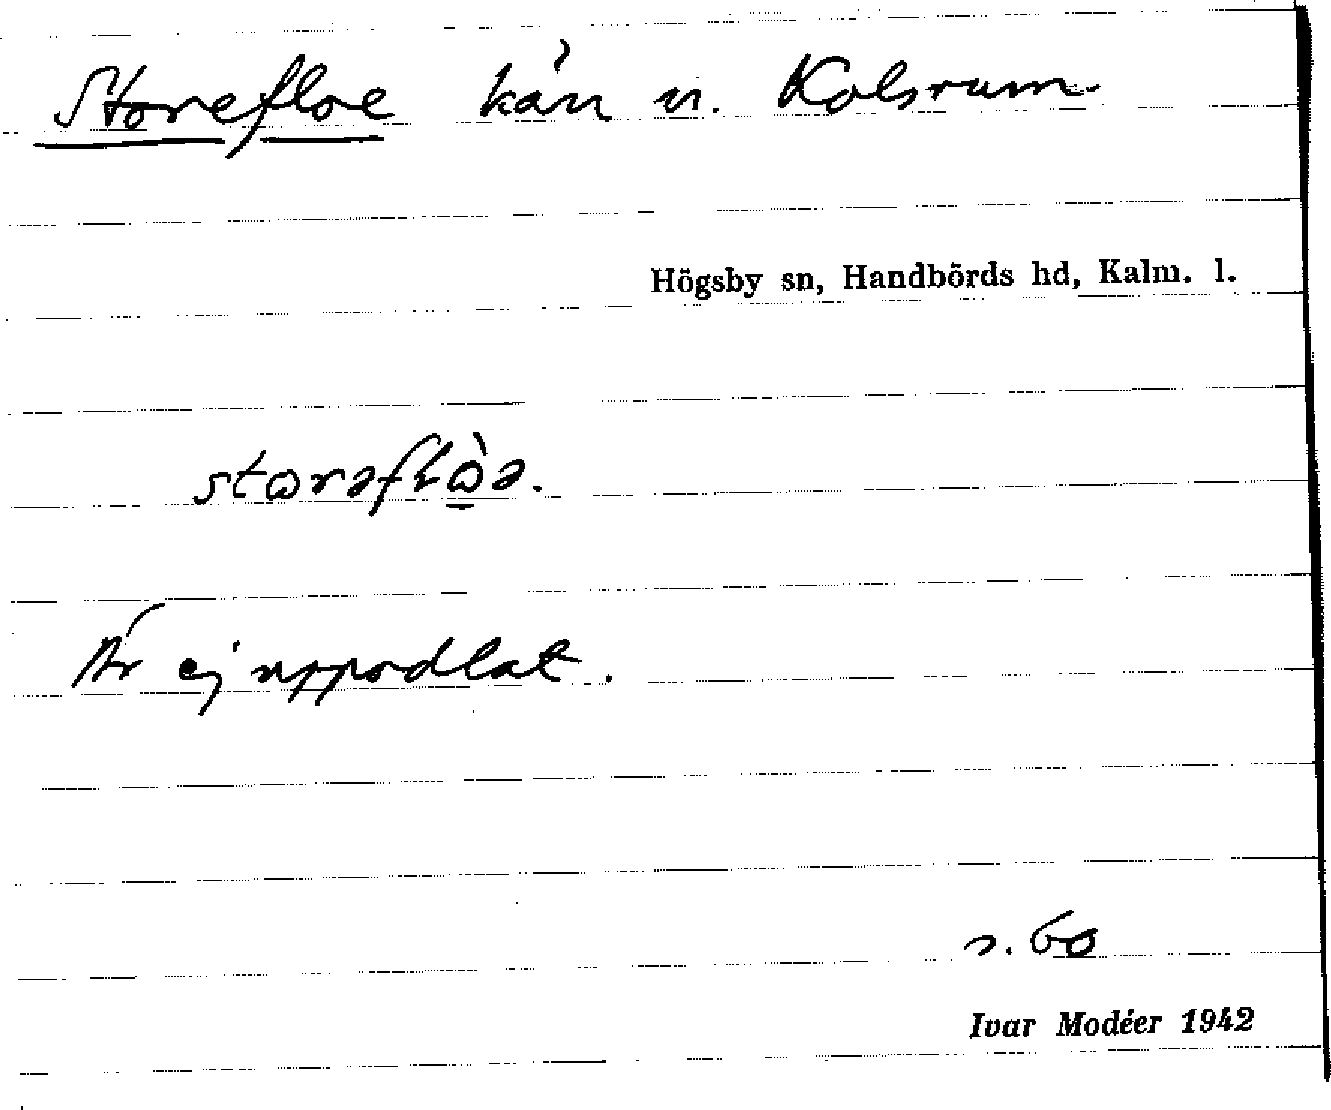 Storefloe kärr n. Kolsrum
Högsby sn, Handbörds hd, Kalm. l.
Är ej uppodlat.
s. 60
Ivar Modéer 1942